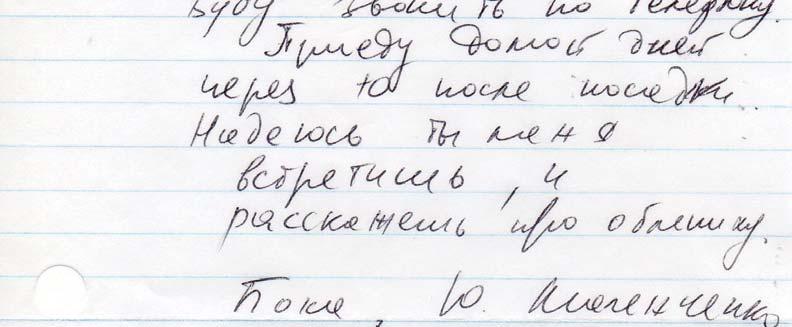 Буду звонить по телефону.
Приеду домой дней
через 10 после посадки.
Надеюсь ты меня
встретишь, и
расскажешь про
Пока, Ю. Маленченко